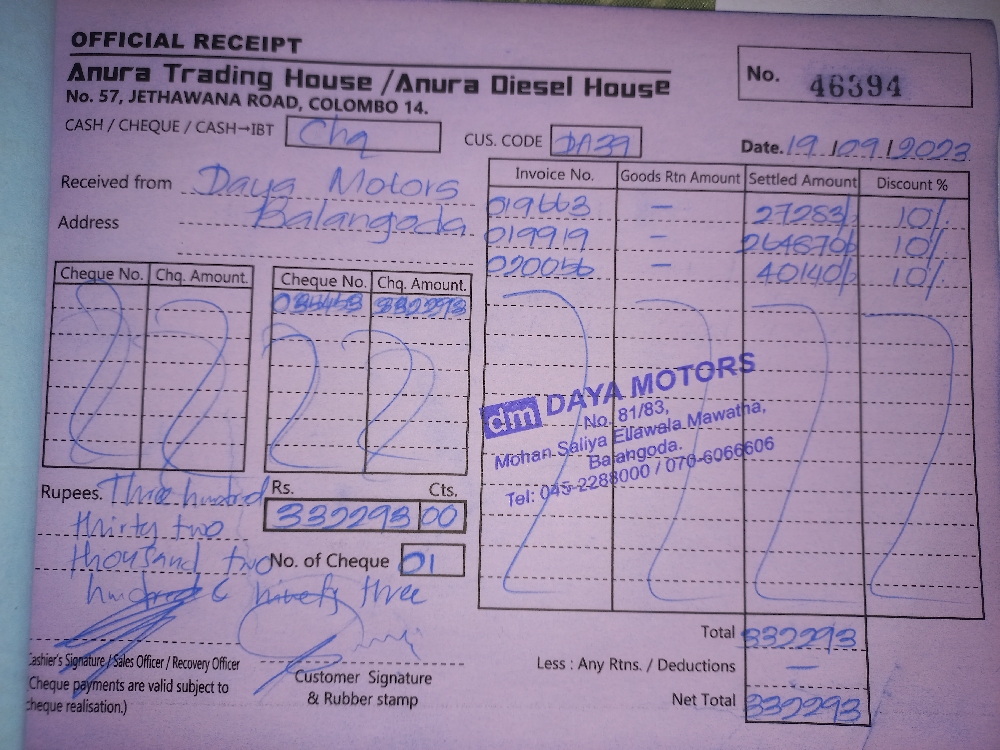 OFFICIAL RECEIPT
Anura Trading House / Anura Diesel House
No. 57, JETHAWANA ROAD, COLOMBO 14.
No. 46394
CASH / CHEQUE / CASH→IBT Chq
CUS. CODE DA39
Date. 19/09/2023
Received from Daya Motors
Address Balangoda
Invoice No. Goods Rtn Amount Settled Amount Discount %
019663 – 27283/- 10%
019919 – 264870/- 10%
020056 – 40140/- 10%
Cheque No. Chq. Amount. Cheque No. Chq. Amount.
332293
dm DAYA MOTORS
No. 81/83,
Mohan Saliya Ellawala Mawatha,
Balangoda.
Tel: 045-2288000 / 070-6066606
Rupees. Three hundred
thirty two
thousand two
hundred & ninety three
Rs. Cts.
332293 00
No. of Cheque 01
Total 332293
Less : Any Rtns. / Deductions –
Net Total 332293
Cashier's Signature / Sales Officer / Recovery Officer
Cheque payments are valid subject to
cheque realisation.)
Customer Signature
& Rubber stamp